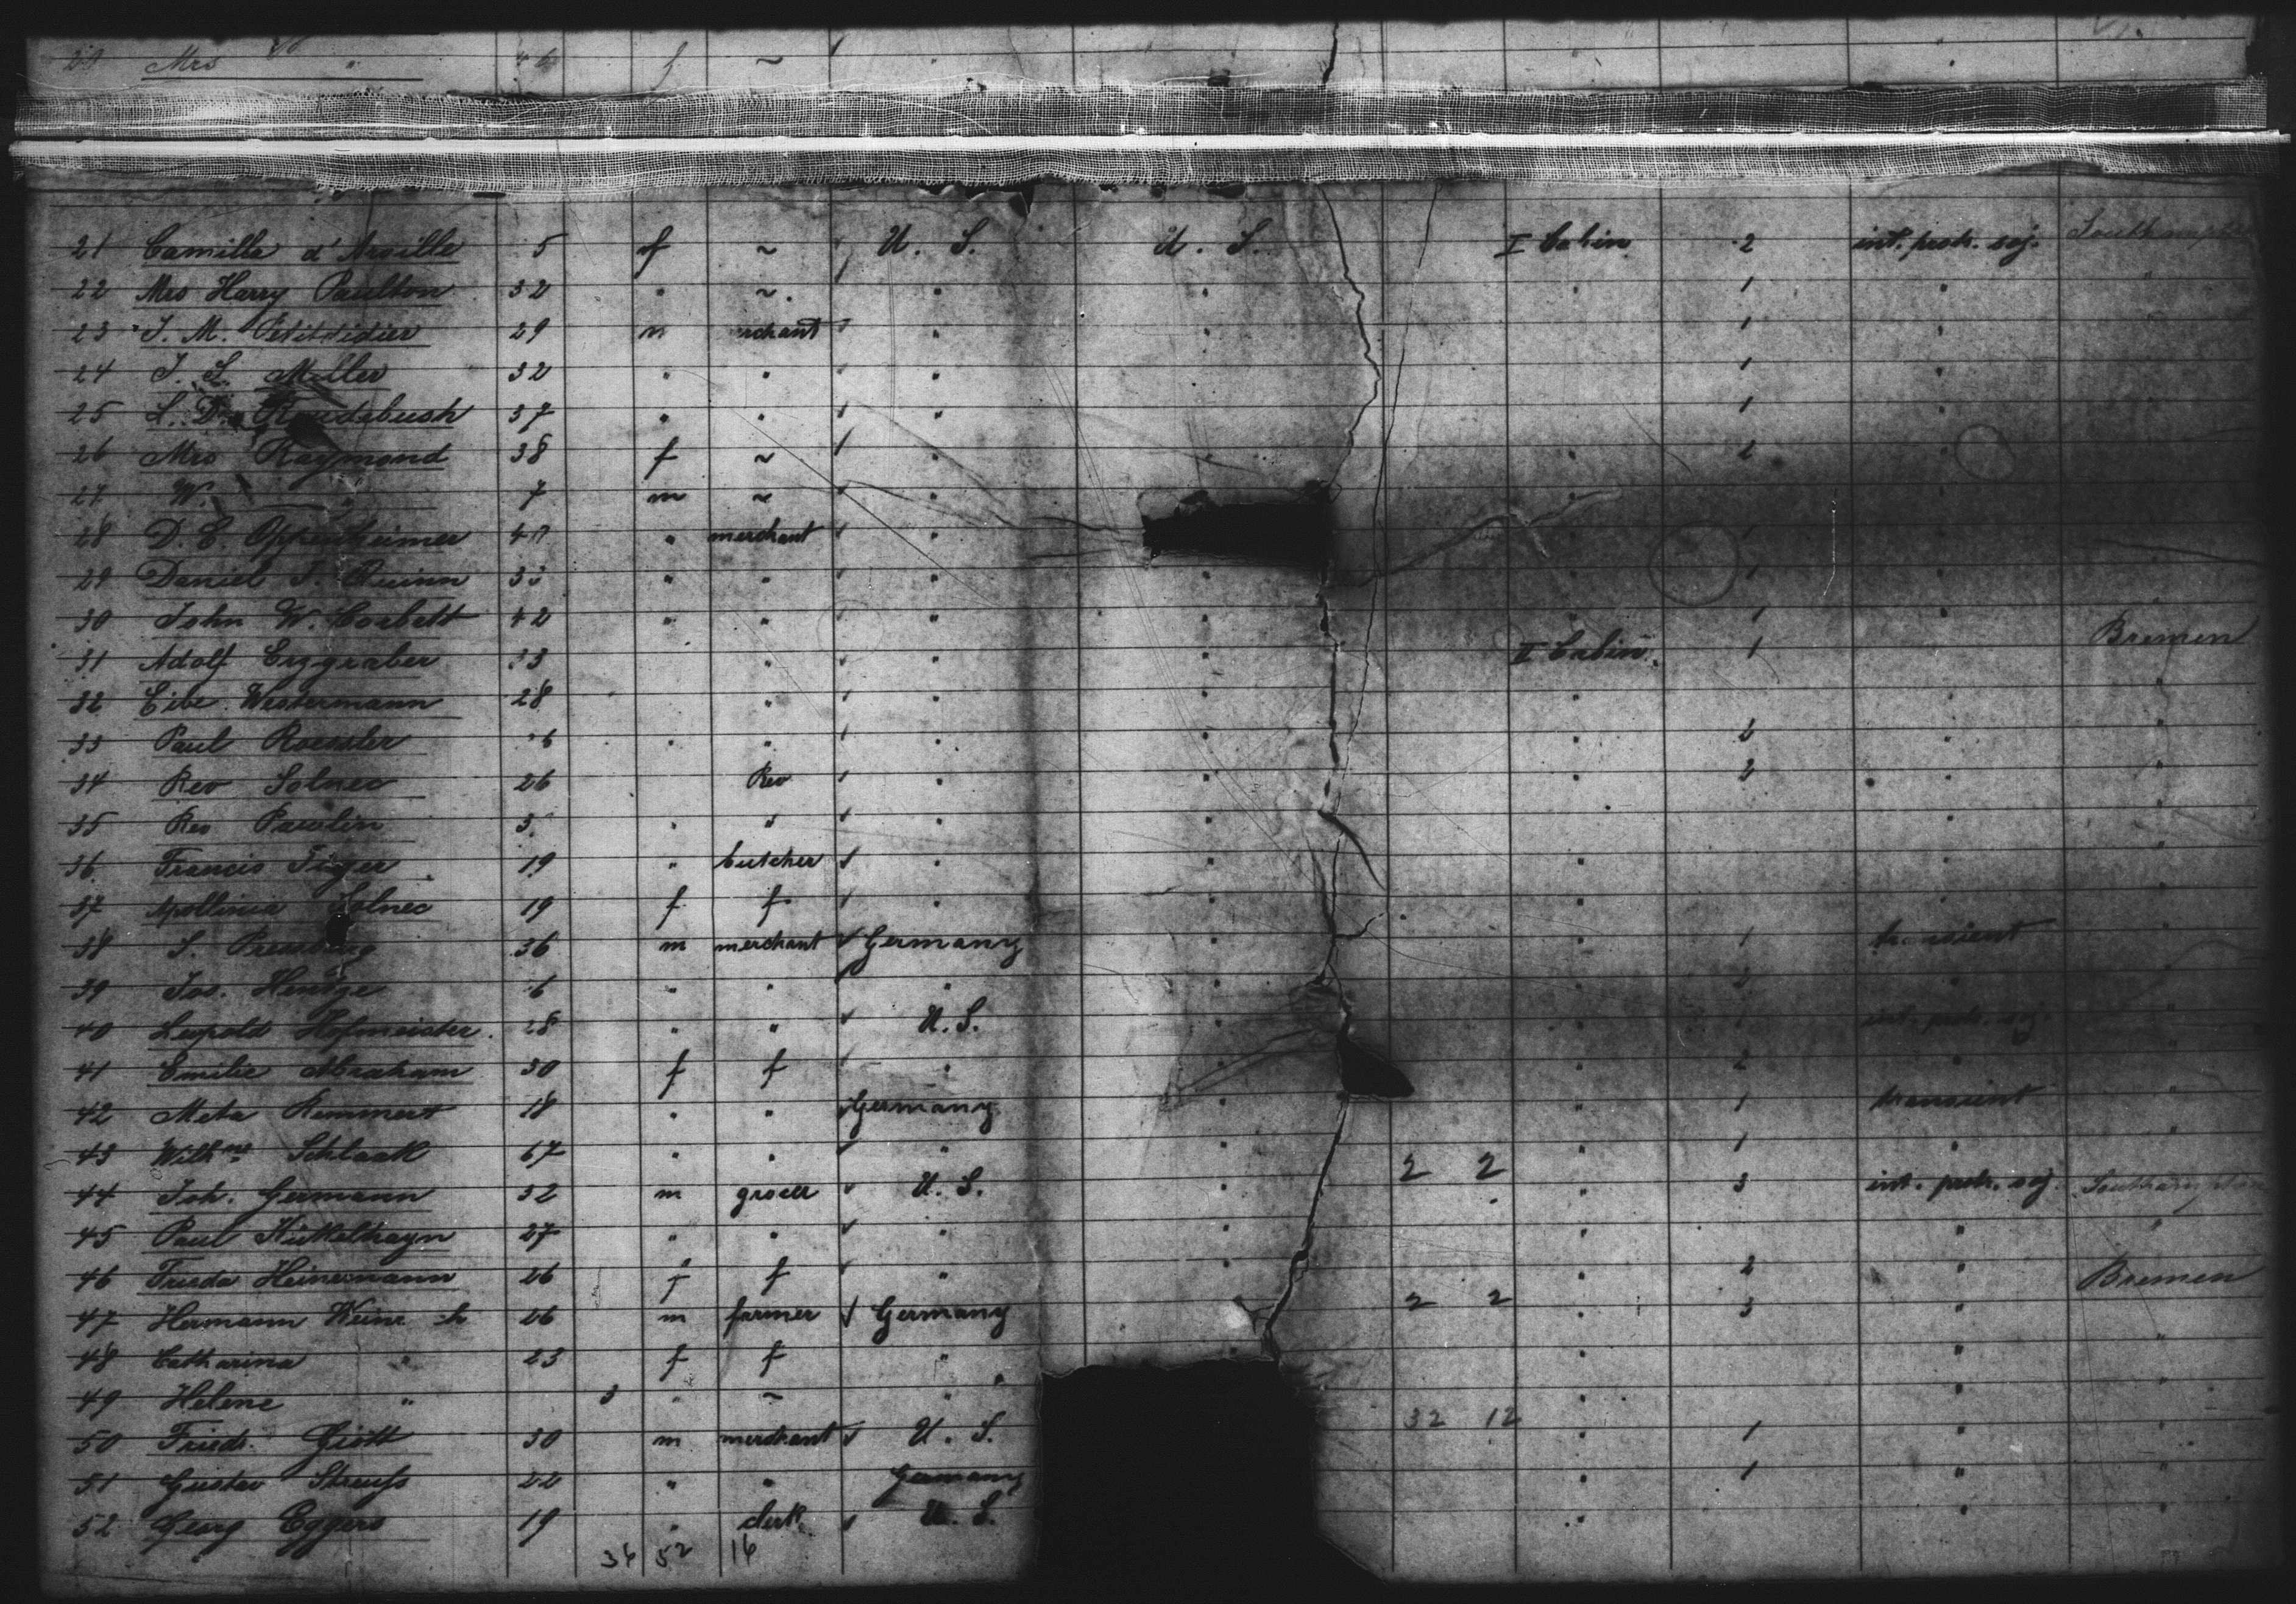 20 Mrs " f ~ "
21 Camille d'Arville 5 f ~ U. S. U. S. I Cabin 2 int. protr. soj. Southampton
22 Mrs Harry Paulton 32 " ~ " " " 1 " "
23 J. M. Petitdidier 29 m rchant " " 1 "
24 J. S. Miller 32 " " " 1 "
25 L. D. Roudebush 37 " " " 1
26 Mrs Raymond 38 f ~ " " " 2 "
27 W. " 7 m ~ " "
28 D. E. Oppenheimer 4 " merchant " 1
29 Daniel J. Quinn 33 " " " " " 1
30 John W. Corbett 42 " " " " " 1 "
31 Adolf Erggraber 33 " " " II Cabin 1 Bremen
32 Eibe Westermann 28 " " " " " "
33 Paul Roessler 6 " " " " " 2 " "
34 Rev Solnec 26 Rev " " " 2 " "
35 Rev Paulin 3 " " " " "
36 Francis Tiger 19 " butcher " " " "
37 Apollinia Solnec 19 f f " " " "
38 S. 36 m merchant Germany " 1 tr. nsient "
39 Jos. Hentge 6 " " " " " 2 "
40 Leopold Hofmeister 28 " " U. S. " " 1 int. protr. soj. "
41 Emilie Abraham 30 f f " " " 2 " "
42 Meta Remmert 18 " " Germany " " 1 transient "
43 Wilhne Schlaak 67 " " " " 2 2 " 1 "
44 Joh. Germann 32 m grocer U. S. " " " 3 int. protr. soj. Southampton
45 Paul Hickelhayn 27 " " " " " " "
46 Frieda Heinemann 26 f f " " " 2 " Bremen
47 Hermann Weinr ch 26 m farmer Germany 2 2 " 3 "
48 Catharina " 23 f f " " " " "
49 Helene " 3 " ~ " " " "
50 Friedr. Giott 30 m merchant U. S. 32 12 " 1 " "
51 Gustav Streufs 22 " " Germany " 1 " "
52 Georg Eggers 19 " clerk U. S. " " "
36 52 16